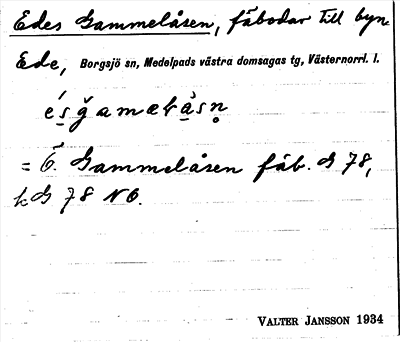 Edes Gammelåsen, fäbodar till byn
Ede, Borgsjö sn, Medelpads västra domsagas tg, Västernorrl. l.
= Ö. Gammelåsen fäb. G 78,
kG 78 NO.
VALTER JANSSON 1934